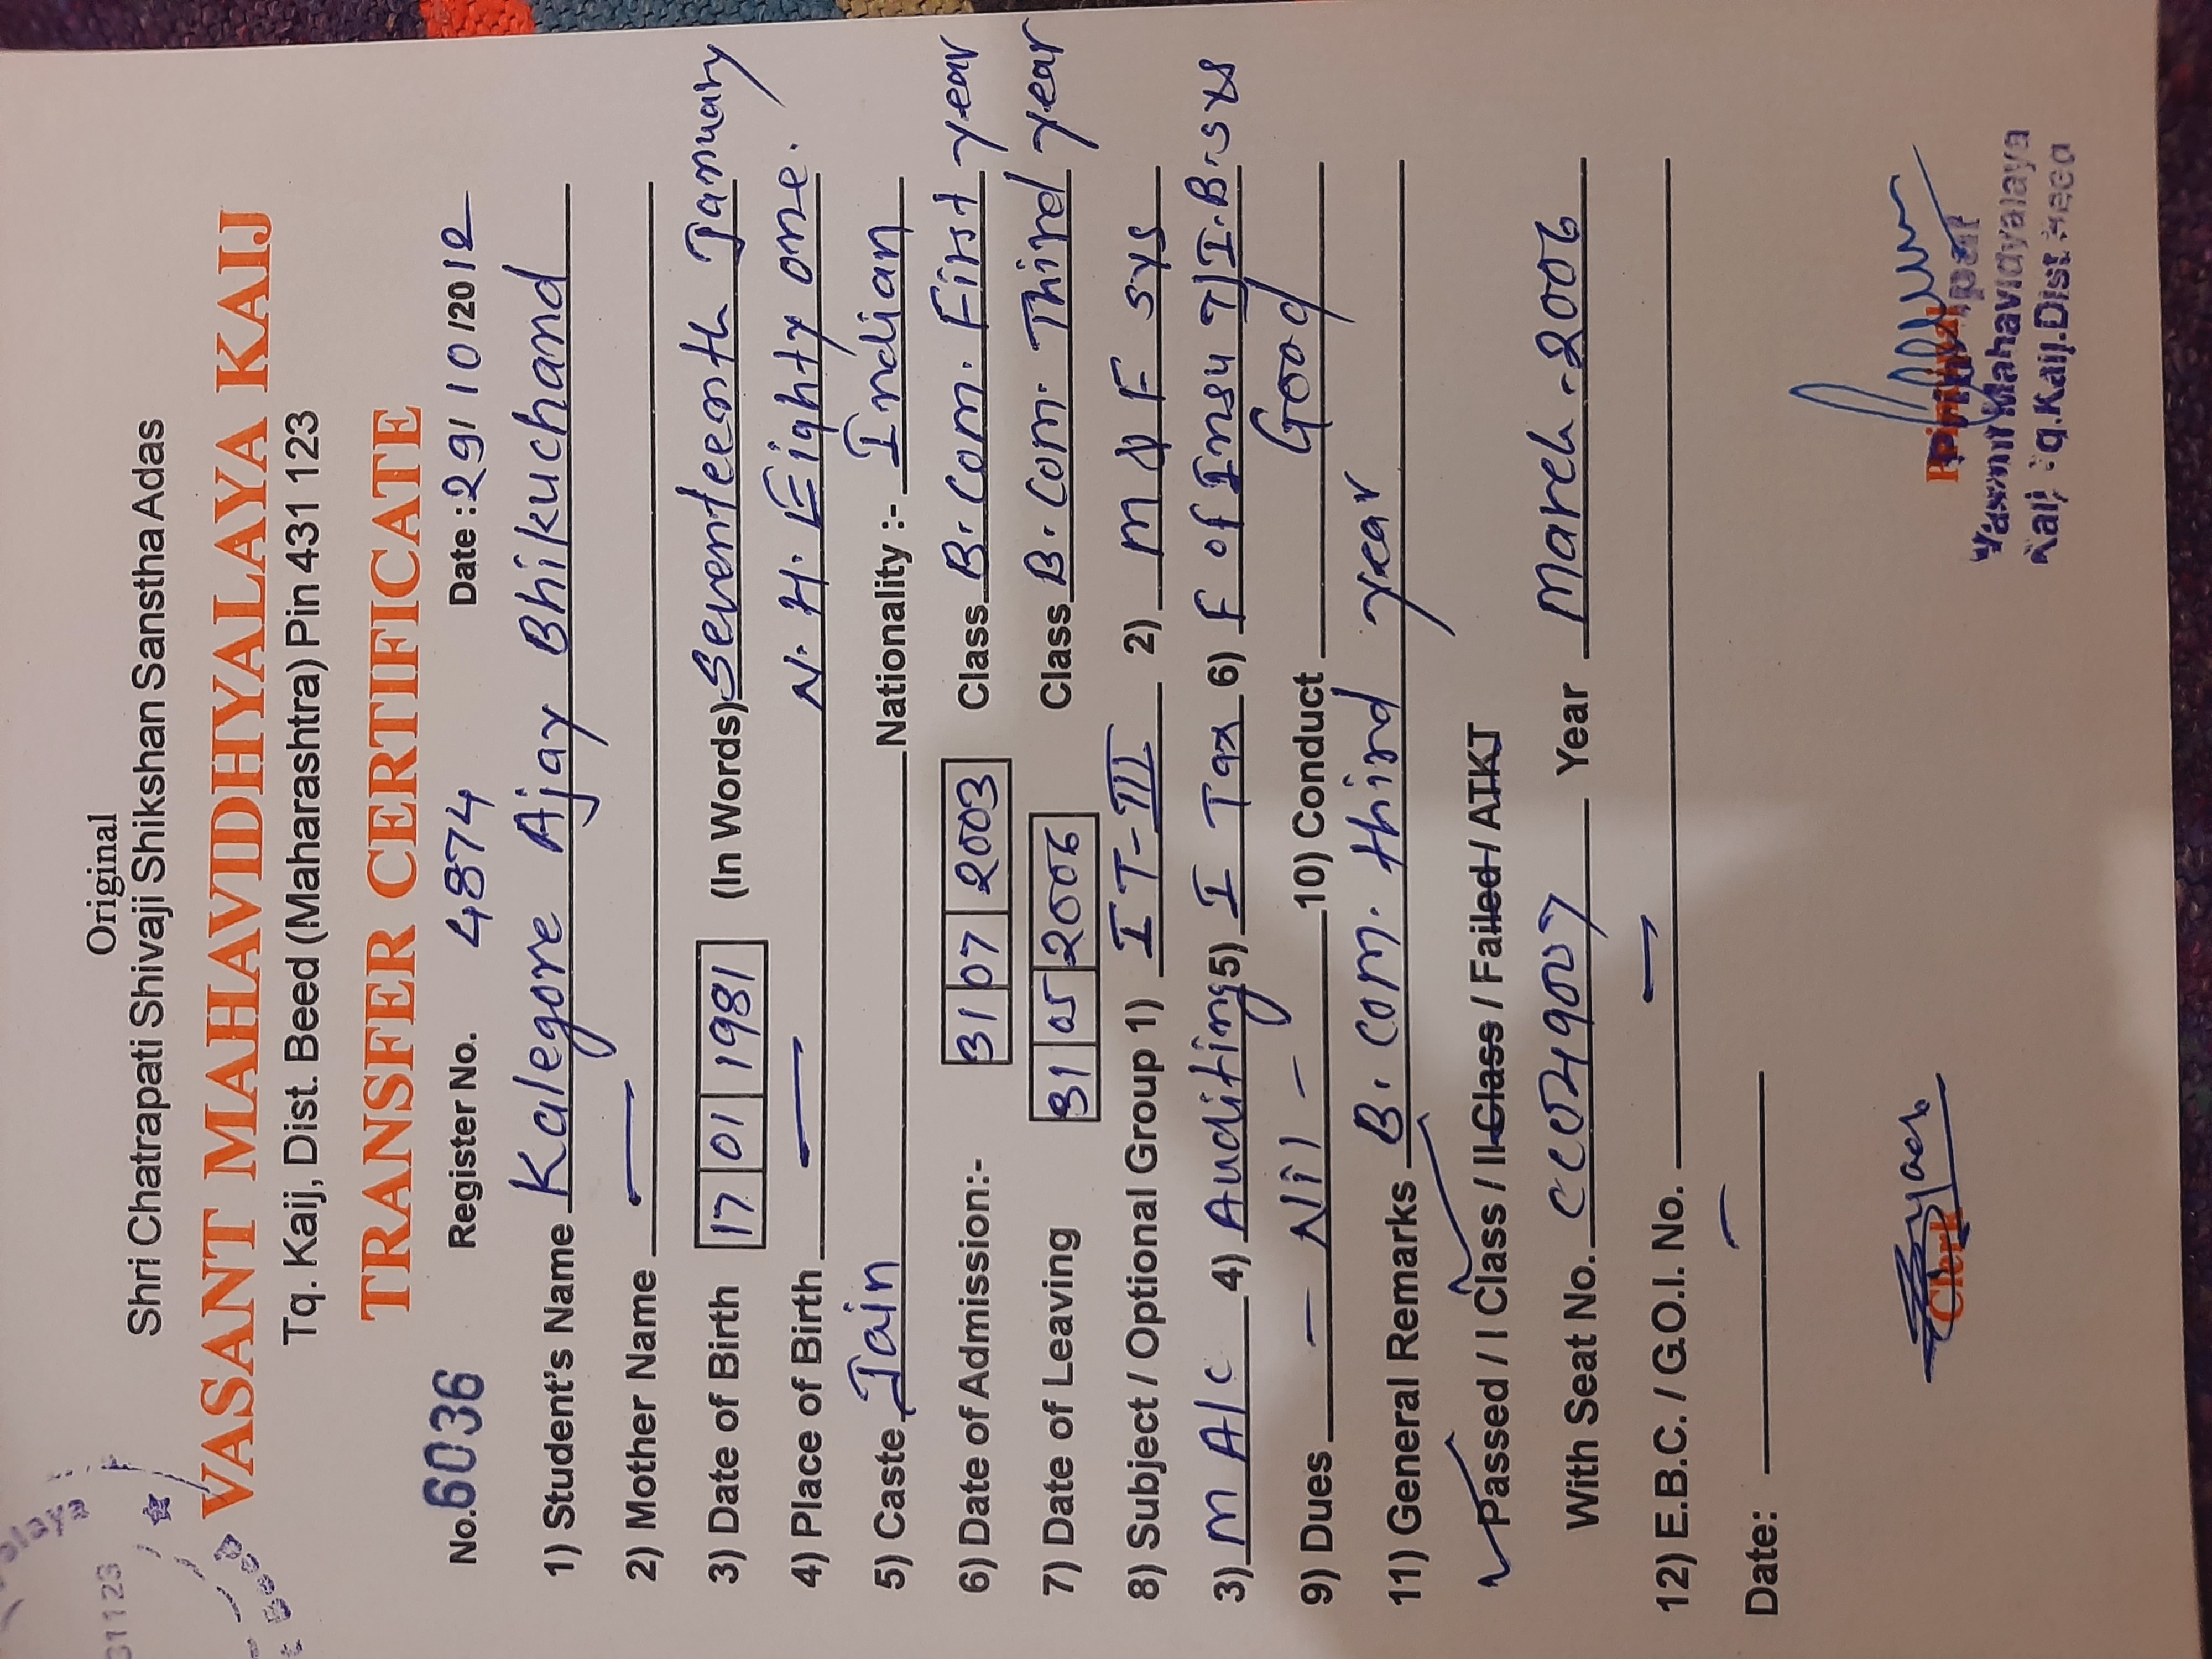 Original
Shri Chatrapati Shivaji Shikshan Sanstha Adas
VASANT MAHAVIDHYALAYA KAIJ
Tq. Kaij, Dist. Beed (Maharashtra) Pin 431 123
TRANSFER CERTIFICATE
No. 6036 Register No. 4874 Date : 29/10/2012
1) Student's Name Kalegore Ajay Bhikuchand
2) Mother Name —
3) Date of Birth 17 01 1981 (In Words) Seventeenth January
4) Place of Birth — N. H. Eighty one.
5) Caste Jain Nationality :- Indian
6) Date of Admission:- 31 07 2003 Class B. Com. First year
7) Date of Leaving 31 05 2006 Class B. Com. Third year
8) Subject / Optional Group 1) IT-III 2) M & F sys
3) M A/c 4) Auditing 5) I Tax 6) F of Insu I.B.sys
9) Dues - Nil - 10) Conduct Good
11) General Remarks B. Com. third year
Passed / I Class / II Class / Failed / ATKT
With Seat No. Year March-2006
12) E.B.C. / G.O.I. No. —
Date: —
Clerk
Principal
Vasant Mahavidyalaya
Kaij Tq.Kaij.Dist.Beed
alaya
31123